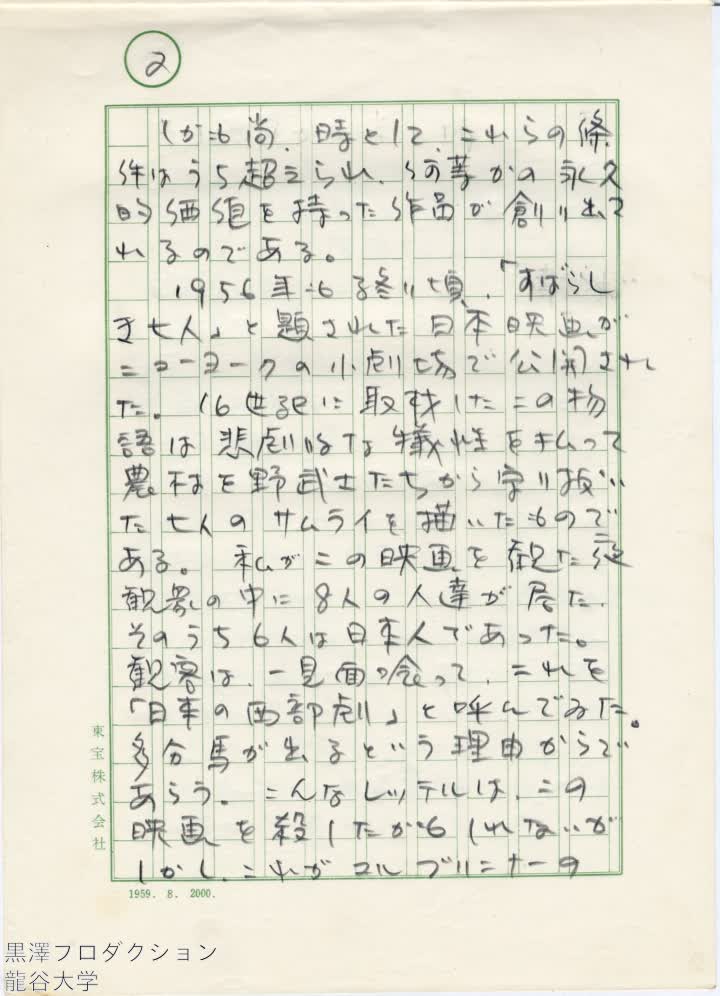 2
しかも尚、時として、これらの條
件はうち超えられ、何等かの永久
的価値を持った作品が創り出さ
れるのである。
1956年も終り頃、「すばらし
き七人」と題された日本映画が
ニューヨークの小劇場で公開され
た。16世紀に取材したこの物
語は悲劇的な犠牲を払って
農村を野武士たちから守り抜い
た七人のサムライを描いたもので
ある。私がこの映画を観た
観客の中に8人の人達が居た、
そのうち6人は日本人であった。
観客は、一見面喰って、これを
「日本の西部劇」と呼んでみた。
多分馬が出るという理由からで
あらう。こんなレッテルは、この
映画を殺したかもしれないが
しかし、これがユルブリンナーの
東宝株式会社
1959. 8. 2000.
黒澤プロダクション
龍谷大学